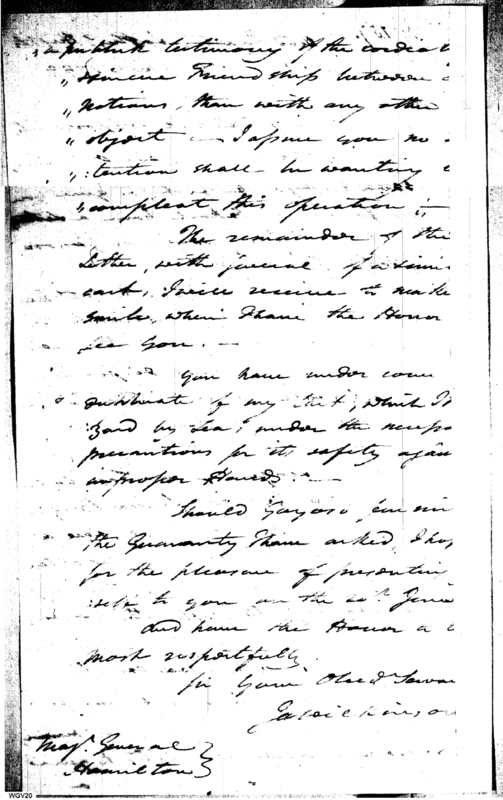 "a publick testimony of the cordial
"& sincere Friendship between
"Nations, than with any other
"object — I assure you no
"tention shall be wanting
"compleat this operation "—
The remainder of the
Letter, with several of a simi
cast, I will reserve to make
smile, when I have the Honor
see you. —
You have under cover
duplicate of my last, which I
zard by Sea, under the
precautions for its safety again
improper Hands. —
Should Gayoso
the Guaranty I have asked, I hop
for the pleasure of presenting
self to you on the
and have the Honor
most respectfully
Sir Your Obed Serva
Ja Wilkinson
Majr. General }
Hamilton }
WGV20